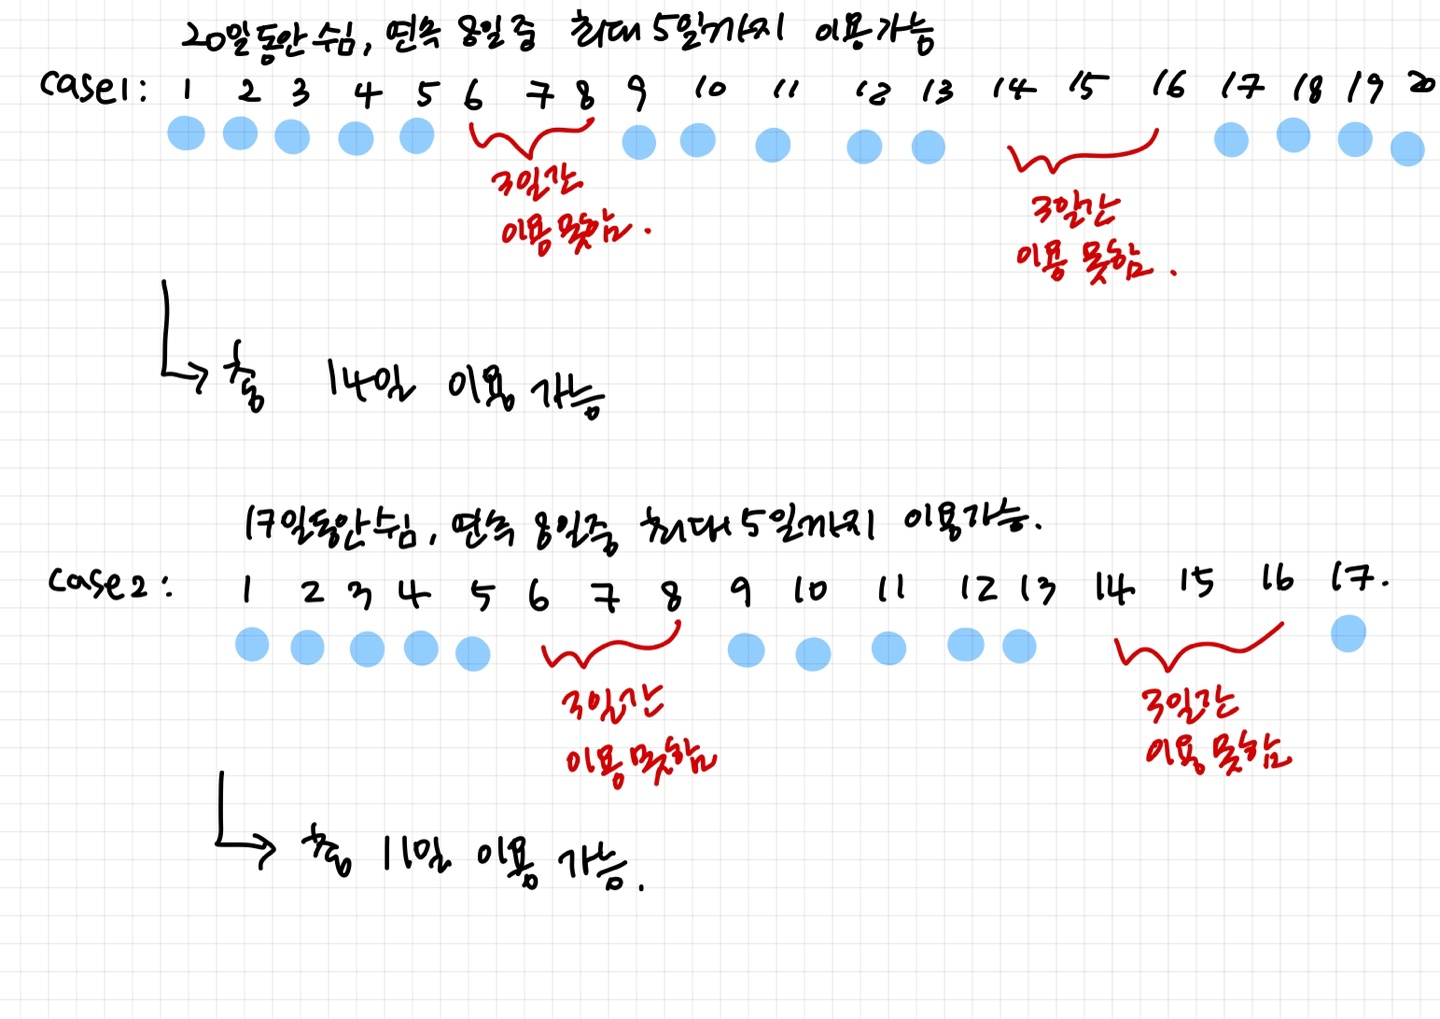 20일동안 수심, 연속 8일중 최대 5일까지 이용가능
case1: 1 2 3 4 5 6 7 8 9 10 11 12 13 14 15 16 17 18 19 20
3일간
이용 못함.
3일간
이용 못함.
총 14일 이용 가능
17일동안 수심, 연속 8일중 최대 5일까지 이용가능.
case2: 1 2 3 4 5 6 7 8 9 10 11 12 13 14 15 16 17.
3일간
이용 못함
3일간
이용 못함
총 11일 이용 가능.